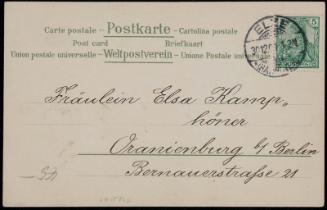 Carte postale - Postkarte - Cartolina postale
Post card Briefkaart
Union postale universelle - Weltpostverein - Unione Postale universale
ELZE
5
Fräulein Elsa Kamp-
höner
Oranienburg b/ Berlin
Bernauerstraße 21